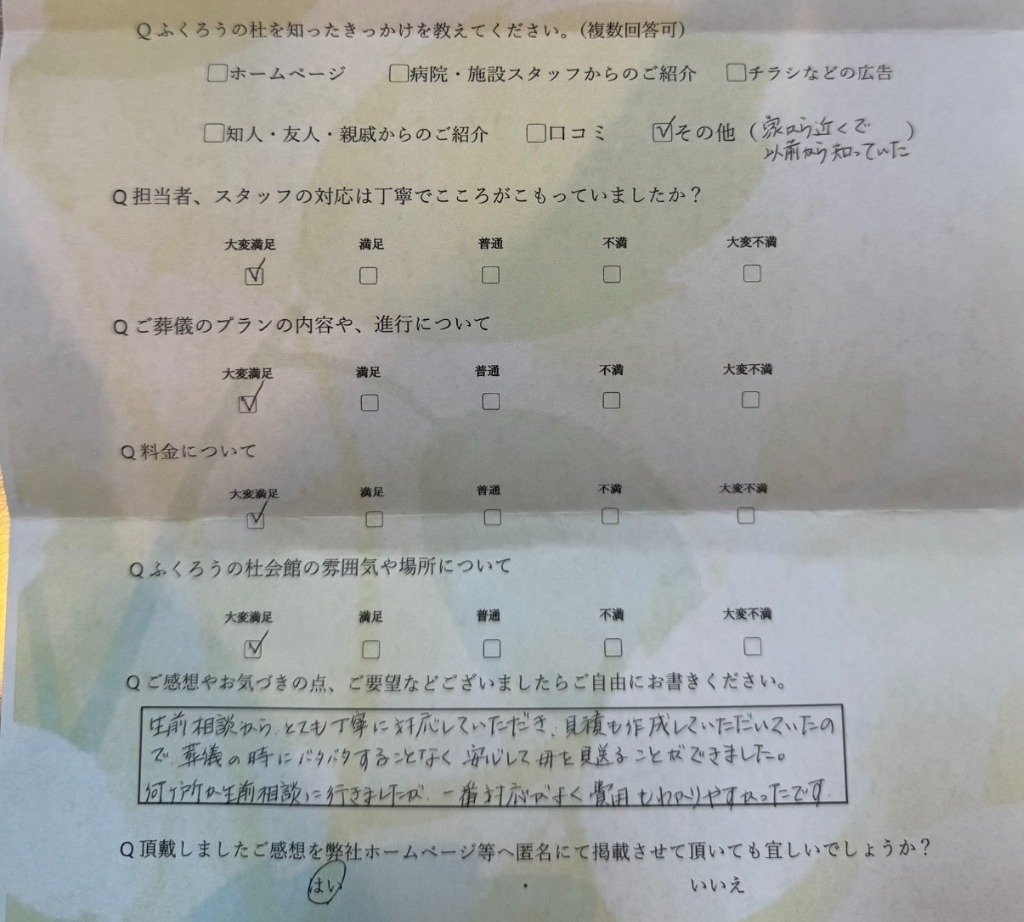 Q ふくろうの杜を知ったきっかけを教えてください。(複数回答可)
□ホームページ □病院・施設スタッフからのご紹介 □チラシなどの広告
□知人・友人・親戚からのご紹介 □口コミ ☑その他（家から近くで
以前から知っていた）
Q 担当者、スタッフの対応は丁寧でこころがこもっていましたか？
大変満足 満足 普通 不満 大変不満
☑ □ □ □ □
Q ご葬儀のプランの内容や、進行について
大変満足 満足 普通 不満 大変不満
☑ □ □ □ □
Q 料金について
大変満足 満足 普通 不満 大変不満
☑ □ □ □ □
Q ふくろうの杜会館の雰囲気や場所について
大変満足 満足 普通 不満 大変不満
☑ □ □ □ □
Q ご感想やお気づきの点、ご要望などございましたらご自由にお書きください。
生前相談から、とても丁寧に対応していただき、見積も作成していただいていたの
で、葬儀の時にバタバタすることなく安心して母を見送ることができました。
何ヶ所か生前相談に行きましたが、一番対応がよく費用もわかりやすかったです。
Q 頂戴しましたご感想を弊社ホームページ等へ匿名にて掲載させて頂いても宜しいでしょうか？
はい ・ いいえ